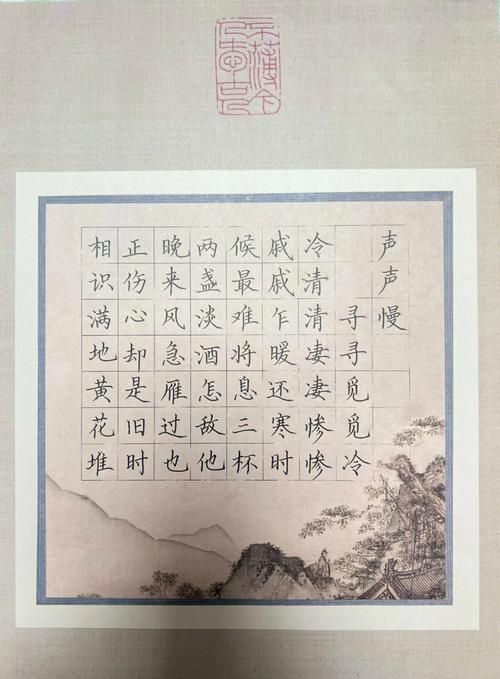 声声慢
寻寻觅觅冷
冷清清凄凄惨惨
戚戚乍暖还寒时
候最难将息三杯
两盏淡酒怎敌他
晚来风急雁过也
正伤心却是旧时
相识满地黄花堆